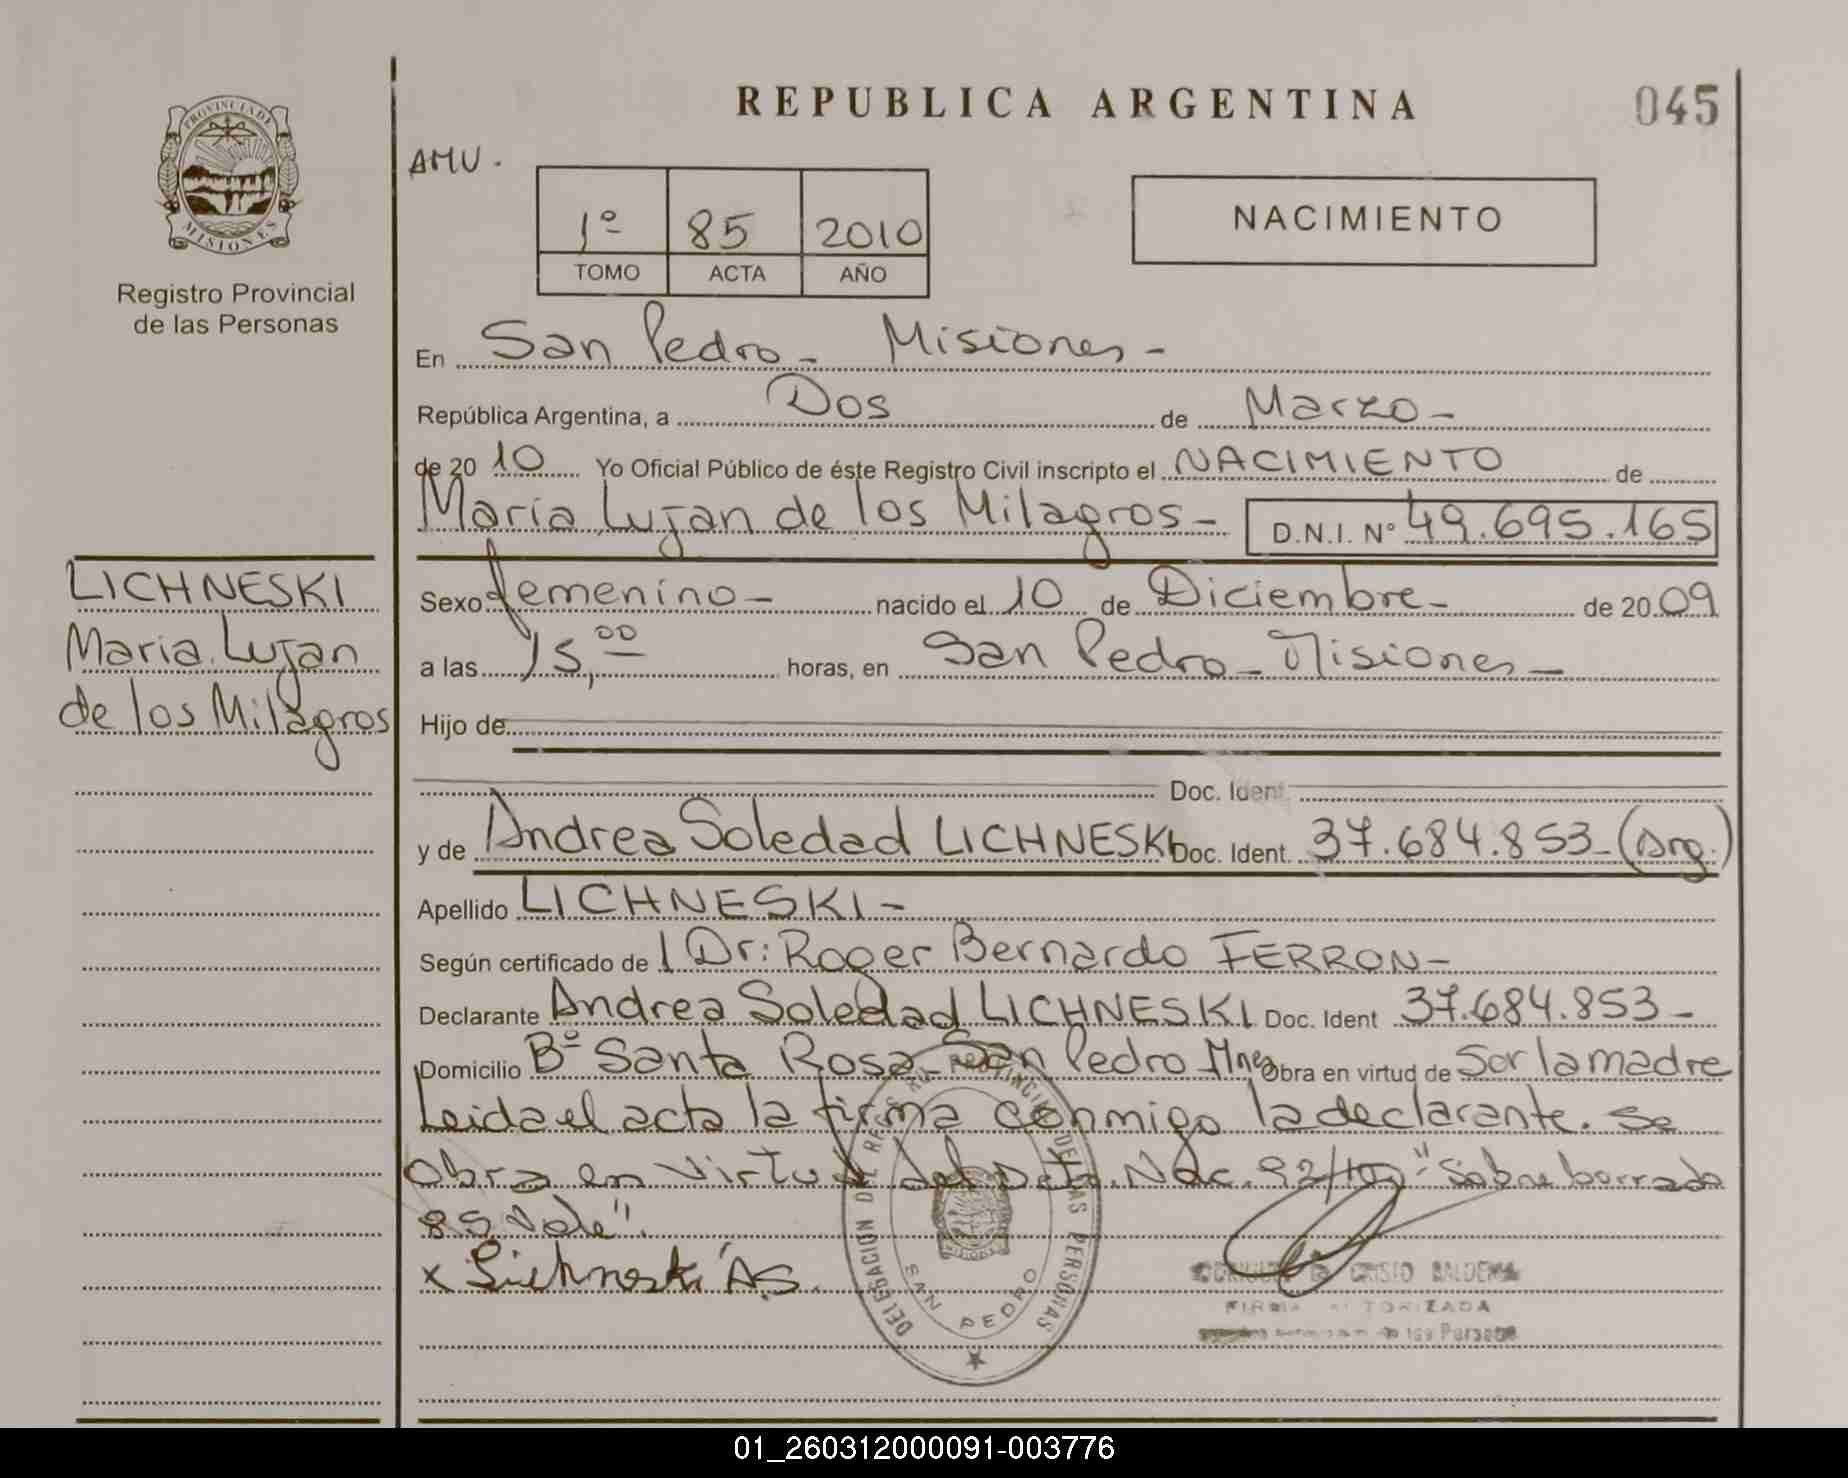 REPUBLICA ARGENTINA
045
PROVINCIA DE
MISIONES
Registro Provincial
de las Personas
AMU.
1º 85 2010
TOMO ACTA AÑO
NACIMIENTO
En San Pedro - Misiones -
República Argentina, a Dos de Marzo -
de 20 10 Yo Oficial Público de éste Registro Civil inscripto el NACIMIENTO de
María Lujan de los Milagros - D.N.I. Nº 49.695.165
LICHNESKI
Maria Lujan
de los Milagros
Sexo femenino - nacido el 10 de Diciembre - de 20 09
a las 15,00 horas, en San Pedro - Misiones -
Hijo de
Doc. Ident.
y de Andrea Soledad LICHNESKI Doc. Ident. 37.684.853 - (Arg.)
Apellido LICHNESKI -
Según certificado de l Dr: Roger Bernardo FERRON -
Declarante Andrea Soledad LICHNESKI Doc. Ident 37.684.853 -
Domicilio Bº Santa Rosa - San Pedro - Mnes Obra en virtud de Ser la madre
Leida el acta la firma conmigo la declarante. Se
Obra en Virtud del Dto. Nac. 92/10 "Sobre borrado
85 Vale".
x Lichneski A.S.
DELEGACION DEL REGISTRO PROVINCIAL DE LAS PERSONAS
MISIONES
SAN PEDRO
CRISTO BALDEMA
FIRMA AUTORIZADA
de las Personas
01_260312000091-003776